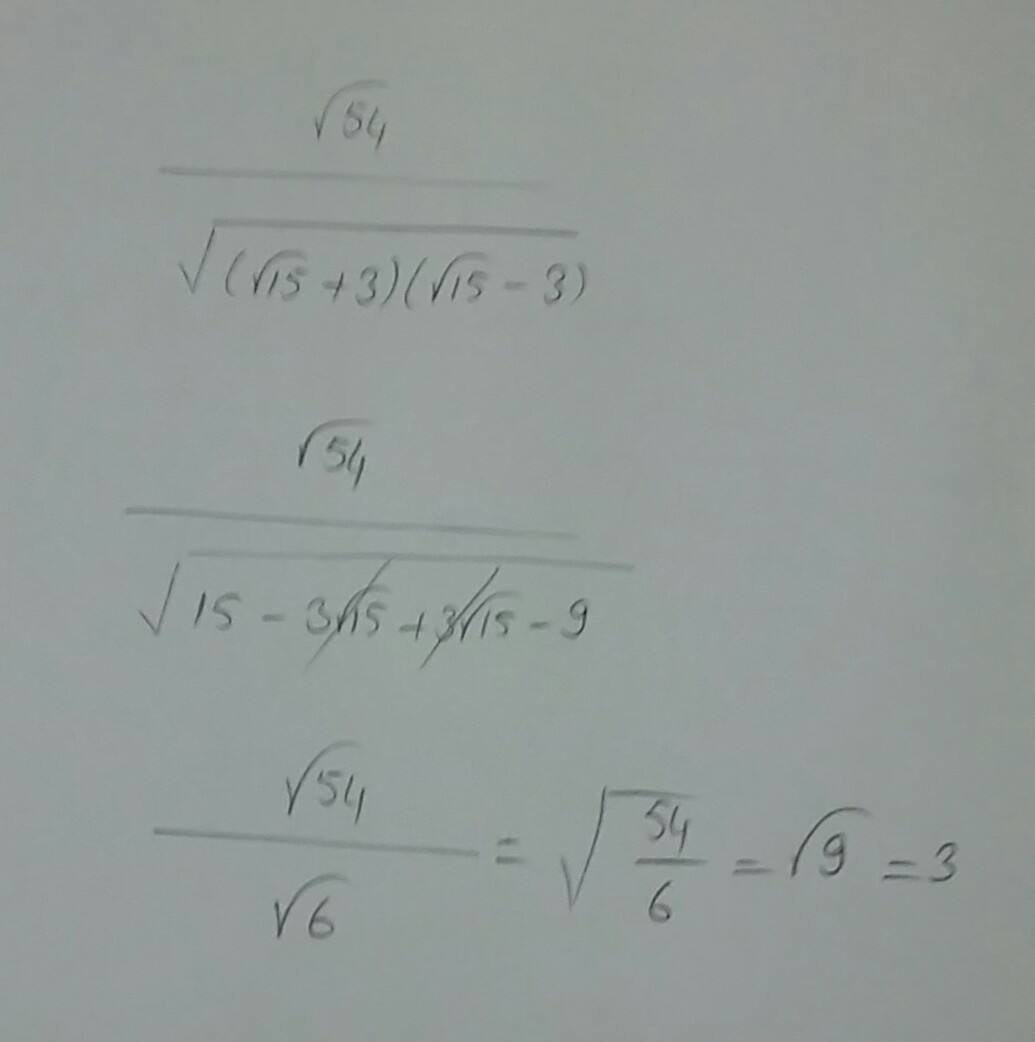 √54
√(√15 + 3)(√15 - 3)
√54
√15 - 3√15 + 3√15 - 9
√54
√6 = √54/6 = √9 = 3